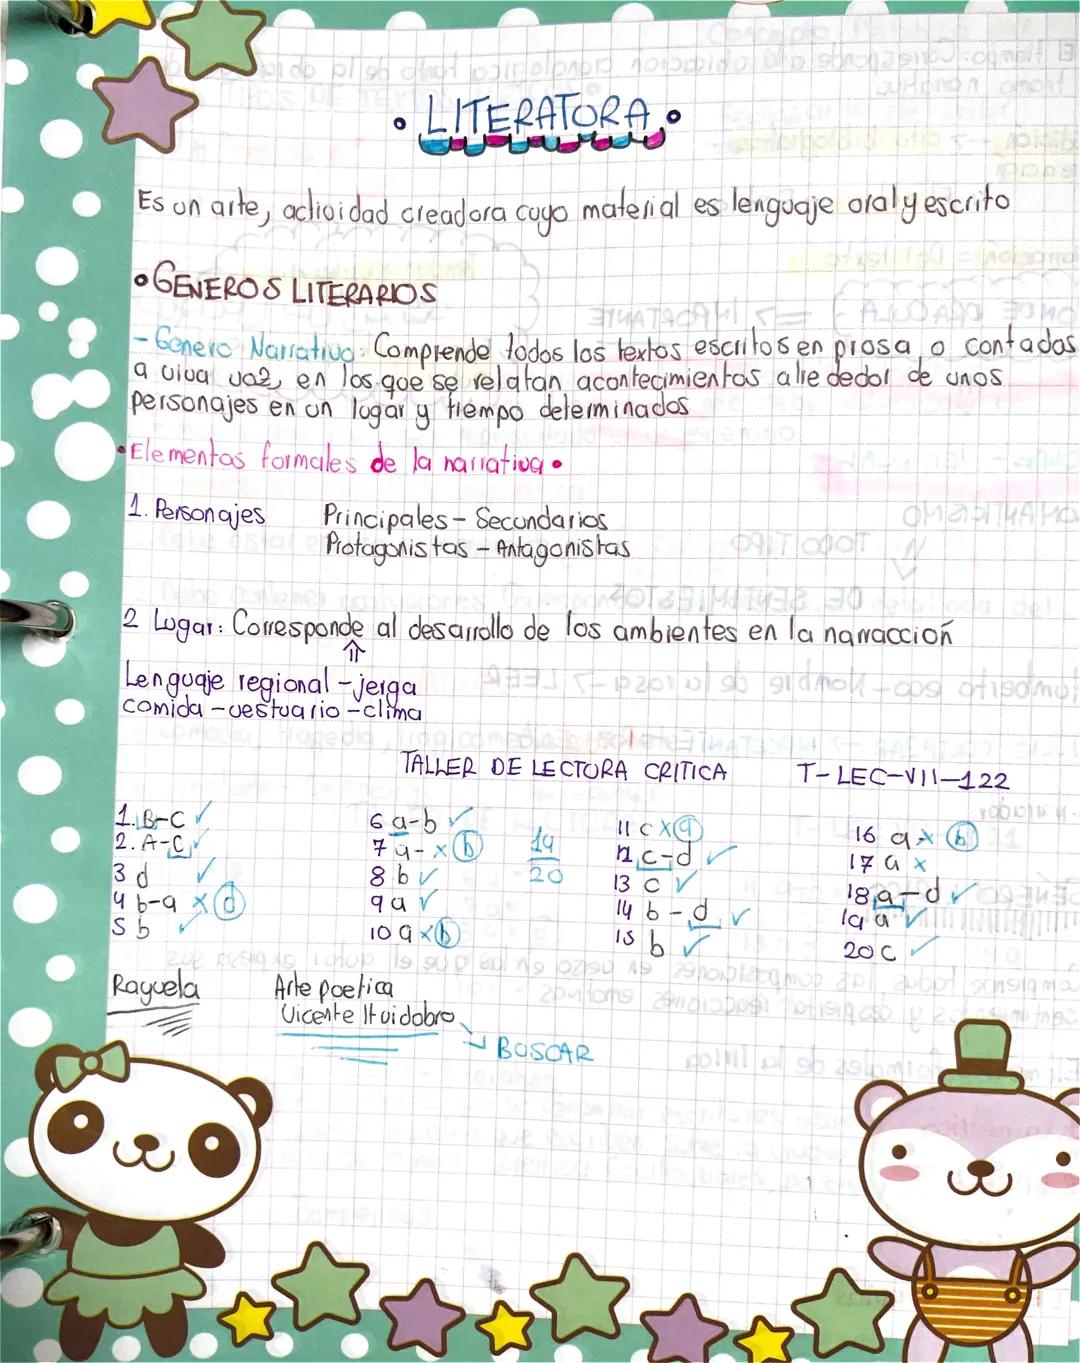 • LITERATURA •
Es un arte, actividad creadora cuyo material es lenguaje oral y escrito
• GENEROS LITERARIOS
- Genero Narrativo: Comprende todos los textos escritos en prosa o contados
a viva voz, en los que se relatan acontecimientos alrededor de unos
personajes en un lugar y tiempo determinados
• Elementos formales de la narrativa •
1. Personajes Principales - Secundarios
Protagonistas - Antagonistas
2 Lugar: Corresponde al desarrollo de los ambientes en la narracción
⇑
Lenguaje regional - jerga
comida - vestuario - clima
TALLER DE LECTURA CRITICA T-LEC-VII-122
1. B-C ✓ 6 a-b ✓ 11 c x (a) 16 a x (b)
2. A-C ✓ 7 a- x (b) 14/20 12 c-d ✓ 17 a x
3 d ✓ 8 b ✓ 13 c ✓ 18 a-d ✓
4 b-a x (d) 9 a ✓ 14 b-d ✓ 19 a ✓
5 b ✓ 10 a x (b) 15 b ✓ 20 c ✓
Rayuela Arte poetica
Vicente Huidobro
→ BUSCAR